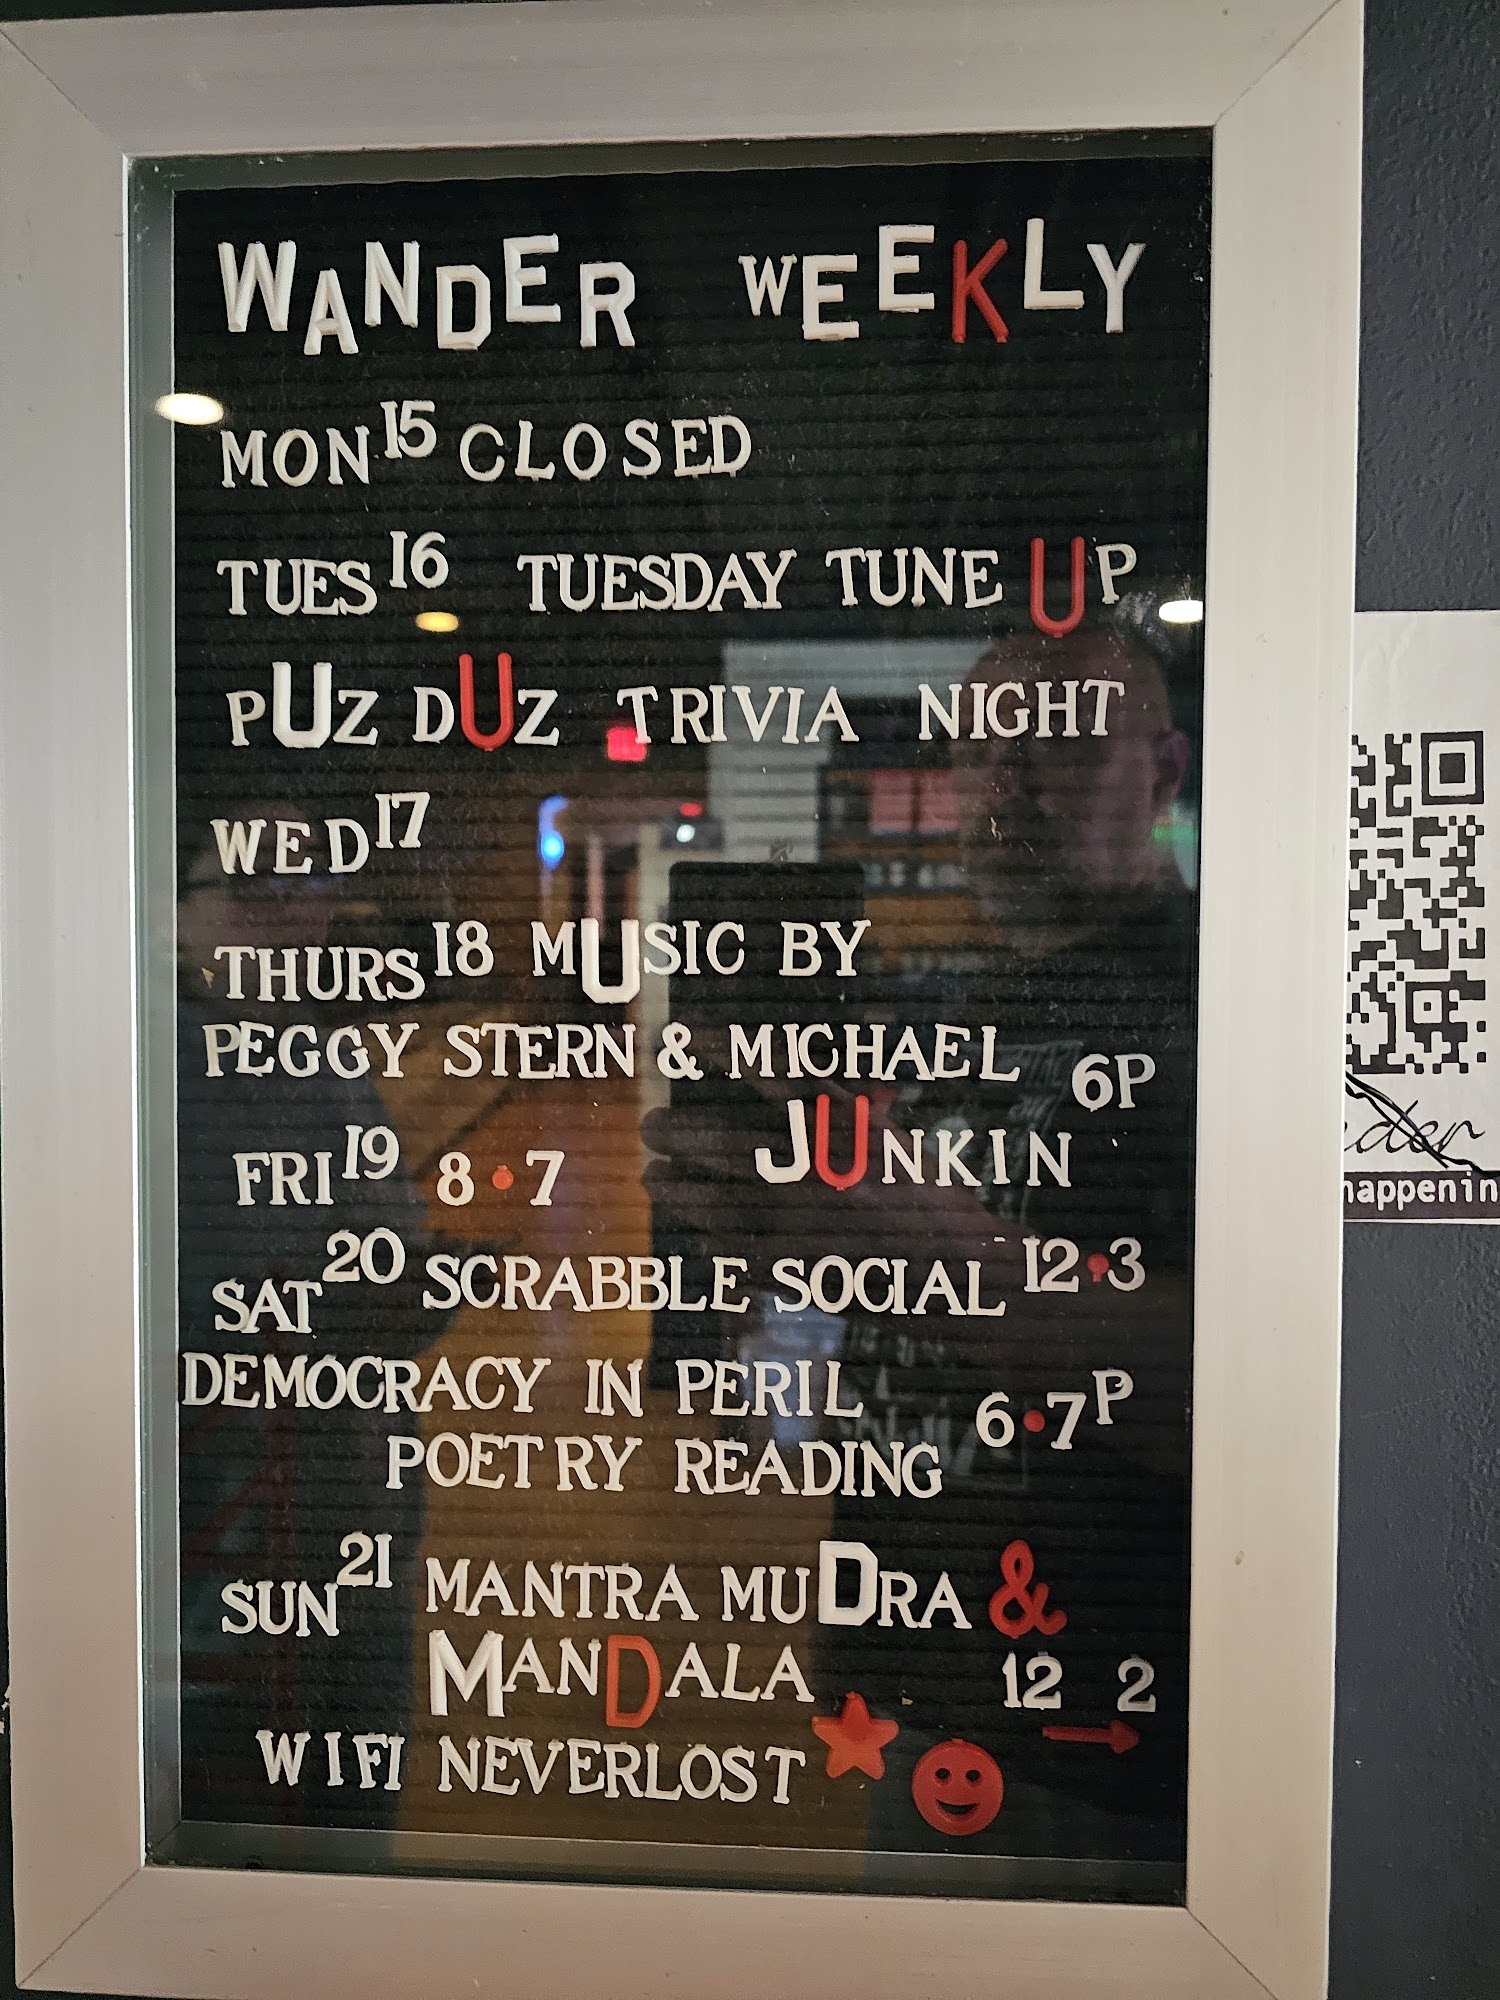 WANDER WEEKLY
MON 15 CLOSED
TUES 16 TUESDAY TUNE UP
PUZ DUZ TRIVIA NIGHT
WED 17
THURS 18 MUSIC BY
PEGGY STERN & MICHAEL 6P
JUNKIN
FRI 19 8•7
SAT 20 SCRABBLE SOCIAL 12•3
DEMOCRACY IN PERIL 6•7P
POETRY READING
SUN 21 MANTRA MUDRA &
MANDALA 12 2
WIFI NEVERLOST
happenin